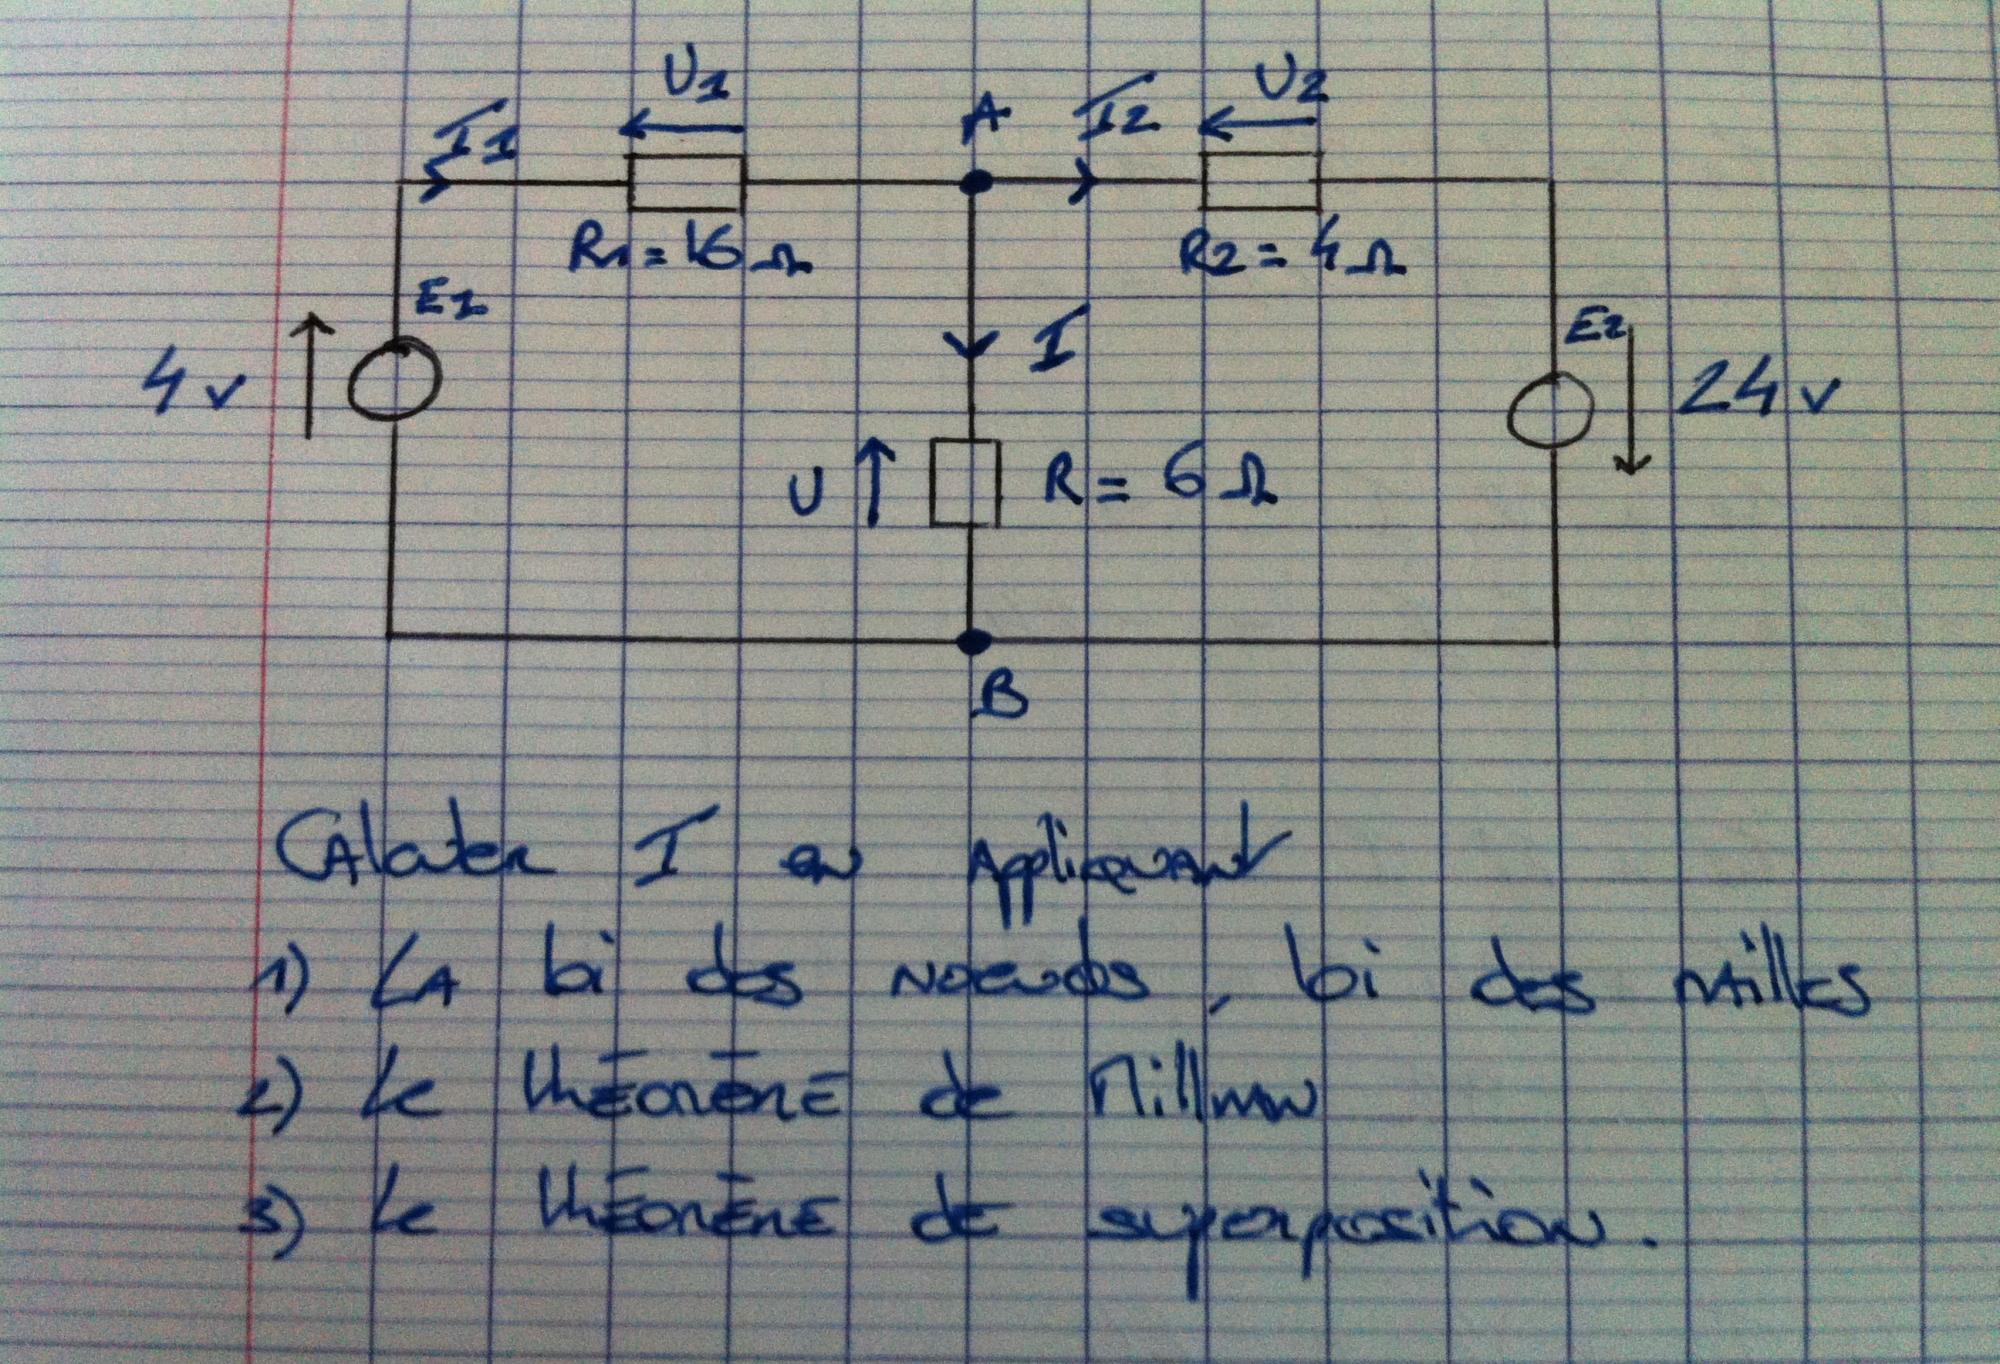 U1
U2
I1
A
I2
R1 = 16 Ω
R2 = 4 Ω
E1
E2
I
4 v
24 v
U
R = 6 Ω
B
CAlculer I en Appliquant
1) LA loi des noeuds, loi des mailles
2) Le théorème de Millman
3) Le théorème de superposition.